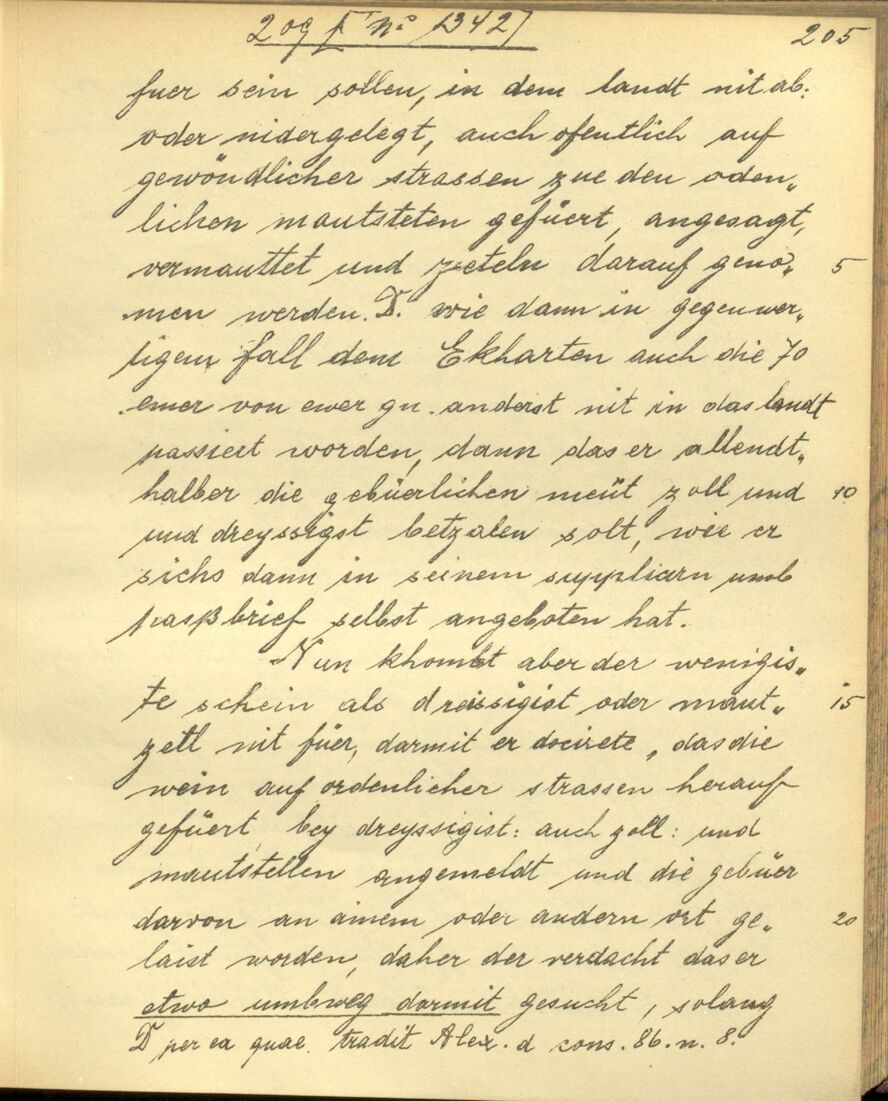 209 f nº 1342] 205
fuer sein sollen, in dem landt nit ab:
oder nidergelegt, auch ofentlich auf
gewöndlicher strassen zue den oden„
lichen mautsteten gefüert, angesagt,
vermauttet und zeteln darauf geno„ 5
men werden. D. wie dann in gegenwer„
tigem fall dem Ekharten auch die 70
emer von ewer gn. anderst nit in das landt
passiert worden, dann das er allendt„
halber die gebüerlichen meüt zoll und 10
und dreyssigst betzalen solt, wie er
sichs dann in seinem supplicirn umb
paßbrief selbst angeboten hat.
Nun khombt aber der wenigis„
te schein als dreissigist oder maut„ 15
zetl nit für, darmit er docirete, das die
wein auf ordenlicher strassen herauf
gefüert, bey dreyssigist: auch zoll: und
mautstellen angemeldt und die gebüer
darvon an ainem oder andern ort ge„ 20
laist worden, daher der verdacht das er
etwo umbweg darmit gesucht, solang
D per ea quae tradit Alex. d cons. 86. n. 8.